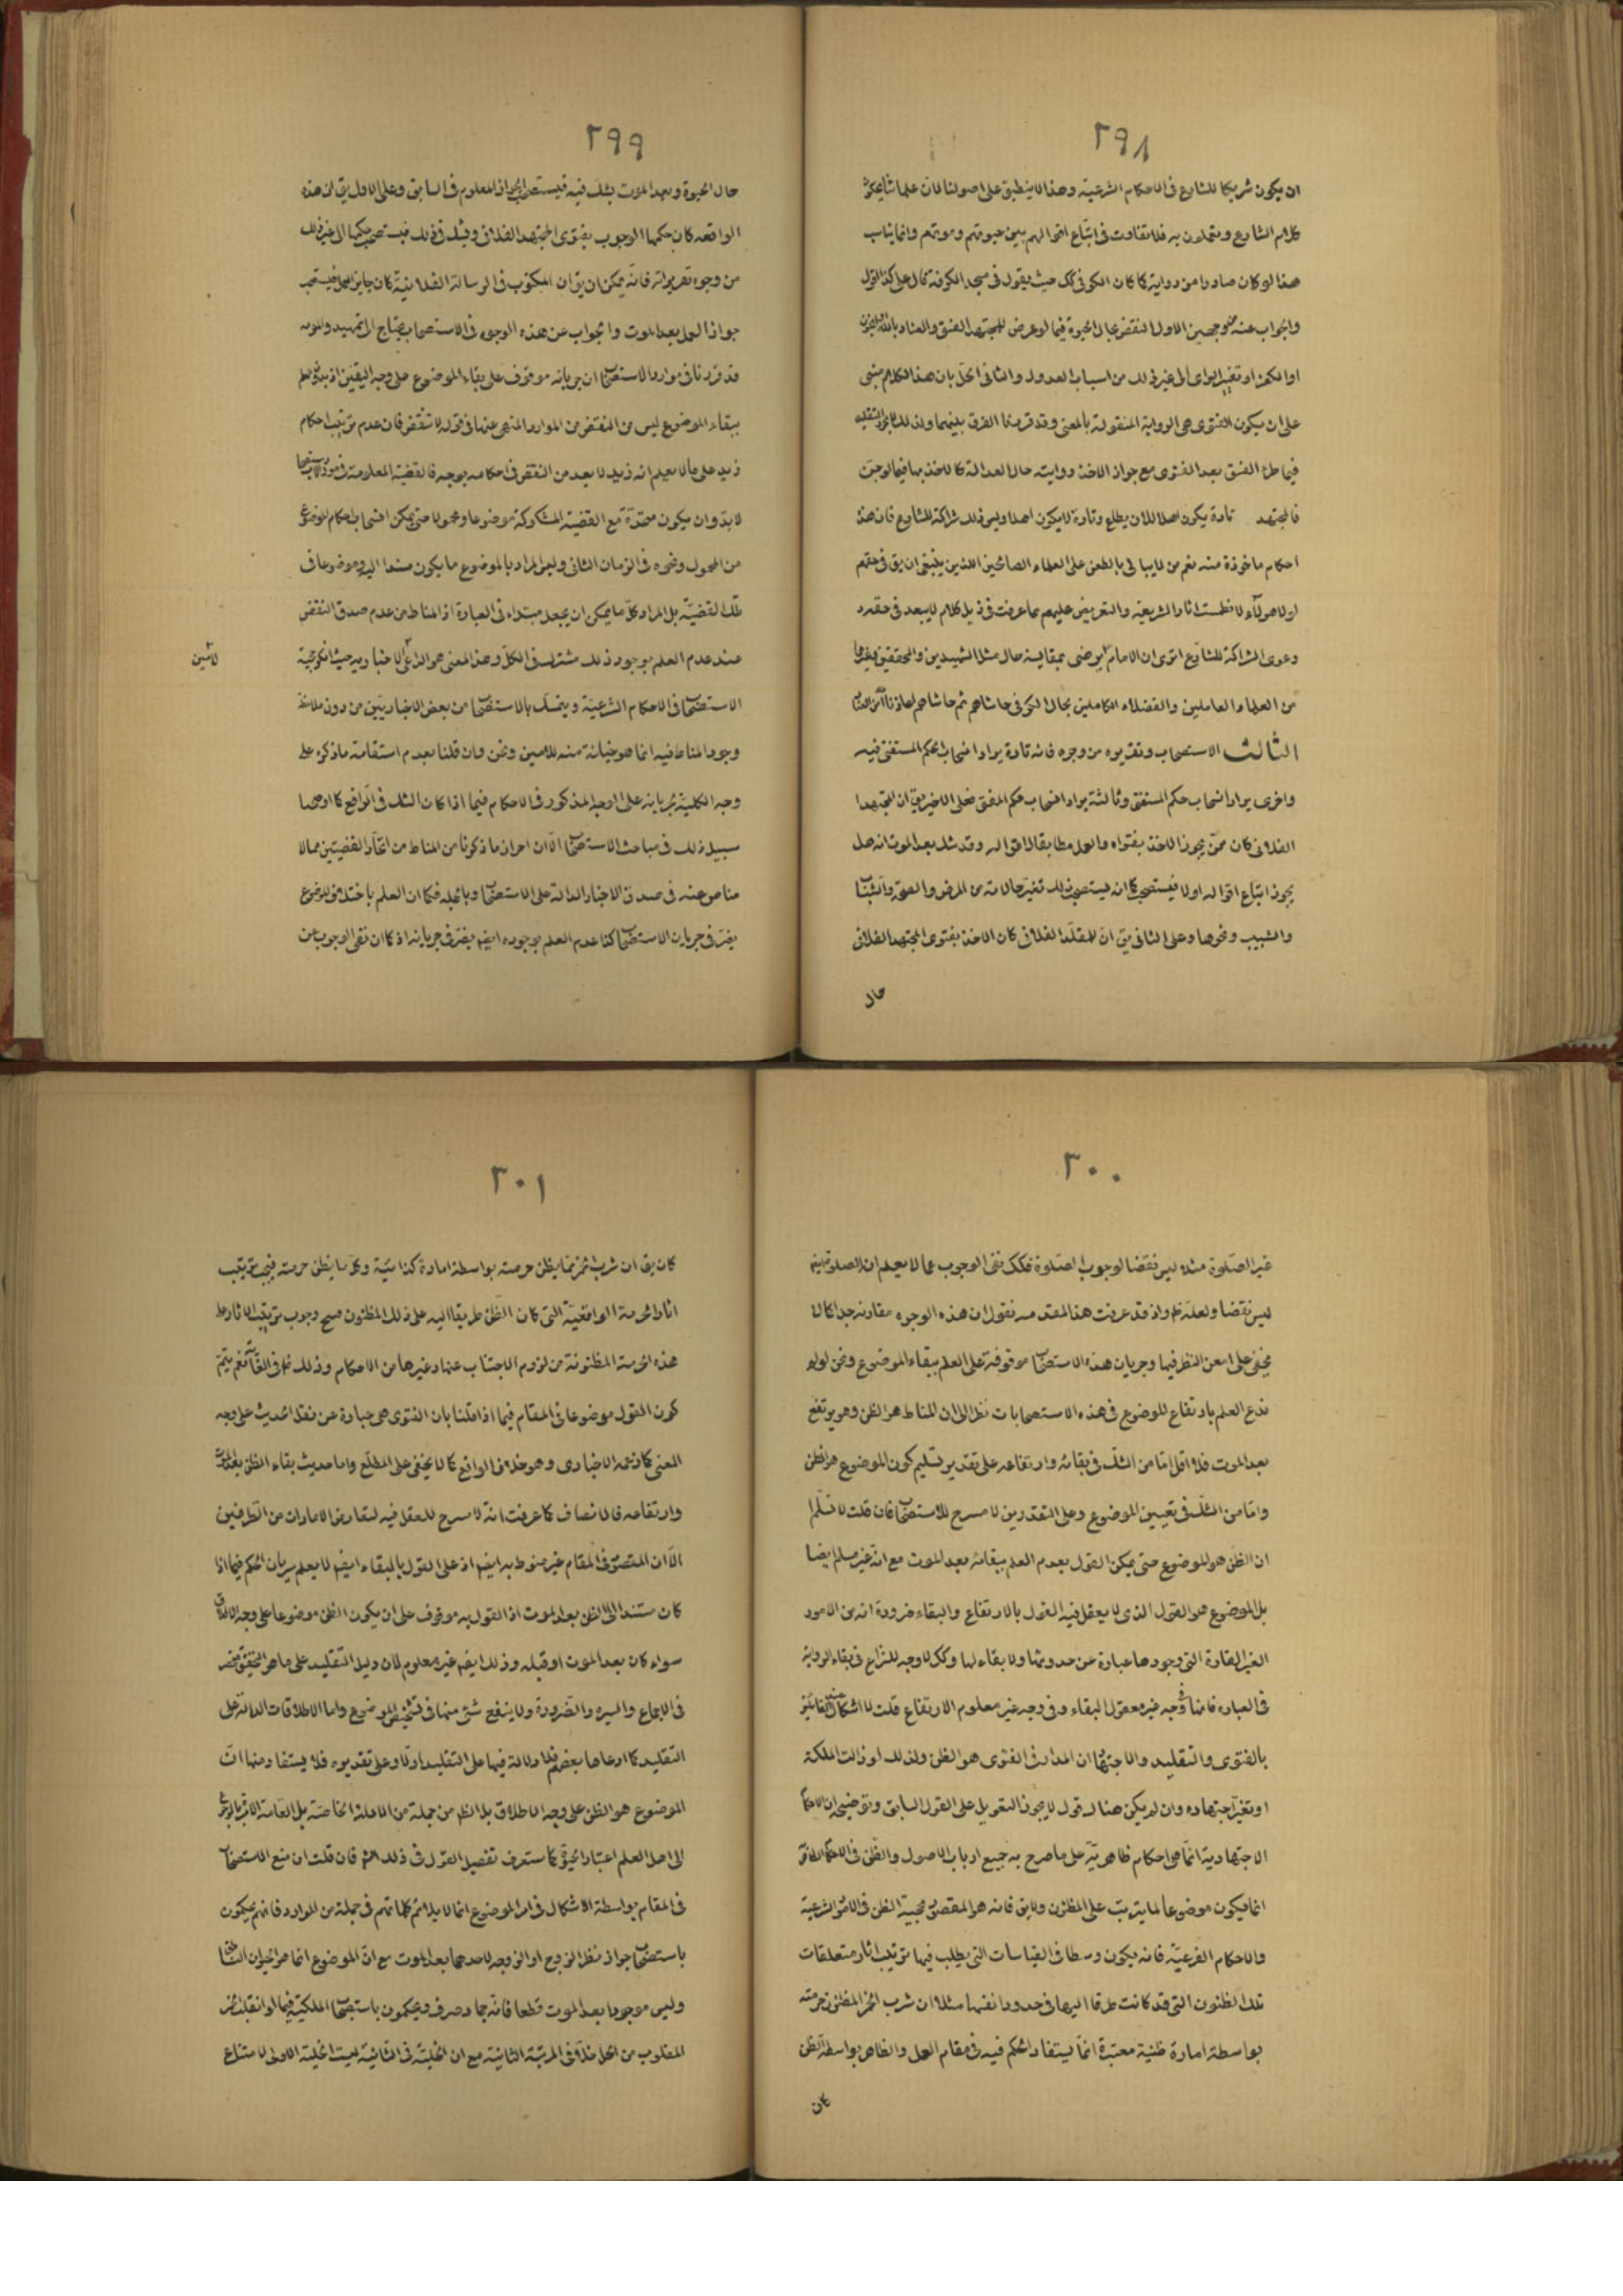 ٢٩٨
ان يكون شريكا للشارع فى الاحكام الشرعية وهذا لا ينطبق على اصولنا لان علمائنا
كلام الشارع و فلا تفاوت فى اتباع اقوالهم بين حيوتهم وموتهم وانما يناسب
هذا لو كان صادرا من كما كان الكوفى حيث يقول فى مسجد الكوفة قال على كذا اقول
والجواب عنه من وجهين الاول النقض بحال الحيوة فيما لو عرض للمجتهد الفسق والعياذ بالله
او الكفر او تغير الراى الى غير ذلك من اسباب العدول والثانى الحل بان هذا الكلام مبنى
على ان يكون الفتوى هى الرواية المنقولة بالمعنى وقد قررنا الفرق بينهما ولذلك لا يجوز التقليد
فيما طرء الفسق بعد الفتوى مع جواز الاخذ روايته حال العدالة كالاخذ بها فيما لو جن
فالمجتهد تارة يكون اهلا لان يطلع وتارة لا يكون اهلا وليس ذلك شراكة للشارع فان هذه
احكام ماخوذة منه نعم من لا يبالى بالطعن على العلماء الصالحين الذين ينبغى ان يق فى حقهم
لولا هؤلاء لانطمست اثار الشريعة والتعريض عليهم بما عرفت فى ذيل كلام لا يبعد فى حقه
دعوى الشراكة للشارع اترى ان الامام يرضى بمقايسة حال مثل الشهيدين والمحققين وغيرهما
من العلماء العاملين والفضلاء الكاملين بحال الكوفى حاشاهم ثم حاشاهم
الثالث الاستصحاب وتقريره من وجوه فانه تارة يراد استصحاب الحكم المستفتى فيه
واخرى يراد استصحاب حكم المستفتى وثالثة يراد استصحاب حكم المفتى فعلى الاخير يق ان المجتهد
الفلانى كان ممن يجوز الاخذ بفتواه والعمل مطابقا لاقواله وقد شك بعد الموت انه هل
يجوز اتباع اقواله اولا فيستصحب كما انه يستصحب ذلك تغير حالاته من المرض والصحة والشباب
والشيب ونحوها وعلى الثانى يق ان للمقلد الفلانى كان الاخذ بفتوى المجتهد الفلانى
حال
٢٩٩
حال الحيوة وبعد الموت يشك فيه فيستصحب الجواز المعلوم فى السابق وعلى الاول يق ان هذه
الواقعه كان حكمها الوجوب بفتوى المجتهد الفلانى وشك فى ذلك فيستصحب حكمها الى غير ذلك
من وجوه تقريراته فانه يمكن ان يق ان المكتوب فى الرسالة الفلانية كان جايز العمل فيستصحب
جواز العمل بعد الموت والجواب عن هذه الوجوه فى الاستصحاب يحتاج الى تمهيد وهو انه
قد قررنا فى موارد الاستصحاب ان جريانه موقوف على بقاء الموضوع على وجه اليقين اذ بدون العلم
ببقاء الموضوع ليس من النقض من الموارد المنهى عنها فى قوله لا تنقض فان عدم ترتيب احكام
زيد على ما لا يعلم انه زيد لا يعد من النقض فى احكامه بوجه فالقضية المعلومة فى مورد الاستصحاب
لا بد وان يكون متحدة مع القضية المشكوكة موضوعا ومحمولا حتى يمكن استصحاب احكام الموضوع
من المحمول ونحوه فى الزمان الثانى وليس المراد بالموضوع ما يكون مسندا اليه وموضوعا فى
تلك القضية بل المراد كل ما يمكن ان يجعل مبتداء فى العبارة اذ المناط من عدم صدق النقض
عند عدم العلم بوجود ذلك مشترك فى الكل وهذا المعنى هو الداعى للاخبارية حيث انكر حجية
الاستصحاب فى الاحكام الشرعية ويتمسك بالاستصحاب من بعض الاخباريين من دون ملاحظة
وجود المناط فيه انما هو خيانة منه للامين ونحن وان قلنا بعدم استقامة ما ذكره على
وجه الكلية بجريانه على الوجه المذكور فى الاحكام فيما اذا كان الشك فى الرافع كما اوضحنا
سبيل ذلك فى مباحث الاستصحاب الا ان احراز ما ذكرنا من المناط من اتحاد القضيتين مما لا
مناص عنه فى صدق الاخبار الدالة على الاستصحاب وبالجملة فكما ان العلم باختلاف الموضوع
يضر فى جريان الاستصحاب كذا عدم العلم بوجوده ايضا يضر فى جريانه اذ كما ان نفى الوجوب عن
٣٠٠
غير الصلوة مثلا ليس نقضا لوجوب الصلوة فكك نفى الوجوب عما لا يعلم انه الصلوة ايضا
ليس نقضا ولعله ظ واذ قد عرفت هذا المقدمه نقول ان هذه الوجوه مقاربة جدا كما لا
يخفى على امعن النظر فيها وجريان هذه الاستصحاب موقوفة على العلم ببقاء الموضوع ونحن لو لم
ندع العلم بارتفاع الموضوع فى هذه الاستصحابات نظرا الى ان المناط هو الظن وهو يرتفع
بعد الموت فلا اقل اما من الشك فى بقائه وارتفاعه على تقدير تسليم كون الموضوع هو الظن
واما من الشك فى تعيين الموضوع وعلى التقديرين لا مسرح للاستصحاب فان قلت لا نسلم
ان الظن هو الموضوع حتى يمكن القول بعدم العلم ببقائه بعد الموت مع انه غير مسلم ايضا
بل الموضوع هو القول الذى لا يعقل فيه القول بالارتفاع والبقاء ضرورة انه من الامور
الغير القارة التى وجودها عبارة عن حدوثها ولا بقاء لها وكك لا وجه للنزاع فى بقاء الرواية
فى العباره فانها فى وجه غير معقول البقاء وفى وجه غير معلوم الارتفاع قلت لا اشكال
بالفتوى والتقليد والاجتهاد ان المدار فى الفتوى هو الظن ولذلك لو زالت الملكة
او تغير اجتهاده وان لم يكن هناك قول لا يجوز التعويل على القول السابق وتوضيحه ان الاحكام
الاجتهادية انما هى احكام ظاهرية على ما صرح به جميع ارباب الاصول والظن فى الاحكام الظاهرية
انما يكون موضوعا لما يترتب على المظنون ولا يق فانه هو المقصود بحجية الظن فى الامور الشرعية
والاحكام الفرعية فانه يكون وسطا فى القياسات التى يطلب فيها ترتيب اثار متعلقات
تلك الظنون التى قد كانت طرقا اليها فى حدود انفسها مثلا ان شرب الخمر المظنون حرمته
بواسطة امارة ظنية معتبرة انما يستفاد الحكم فيه فى مقام العمل والظاهر بواسطة الظن
كان
٣٠١
كان يق ان شرب الخمر مما يظن حرمته بواسطة امارة كذائية وكل ما يظن حرمته فيجب ترتيب
اثار الحرمة الواقعية التى كان الظن طريقا اليه على ذلك المظنون فينتج وجوب ترتيب الاثار على
هذه الحرمة المظنونة من لزوم الاجتناب عنها وغيرها من الاحكام وذلك ظ فى الغاية نعم يتم
كون القول موضوعا فى المقام فيما اذا قلنا بان الفتوى هى عبارة عن نقل الحديث على وجه
المعنى كما زعمه الاخبارى وهو خلاف الواقع كما لا يخفى على المطلع واما حديث بقاء الظن بعد الموت
وارتفاعه فالانصاف كما عرفت انه لا مسرح للعقل فيه لتعارض الامارات من الطرفين
الا ان المقصود فى المقام غير منوط به ايضا اذ على القول بالبقاء ايضا لا يعلم سريان الحكم فيما اذا
كان مستندا الى الظن بعد الموت اذ القول به موقوف على ان يكون الظن موضوعا على وجه الاطلاق
سواء كان بعد الموت او قبله وذلك ايضا غير معلوم لان دليل التقليد على ما هو التحقيق منحصر
فى الاجماع والسيره والضرورة ولا ينفع شئ منها فى تشخيص الموضوع واما الاطلاقات الدالة على
التقليد كما ادعاها بعضهم فلا دلالة فيها على التقليد اولا وعلى تقديره فلا يستفاد منها ان
الموضوع هو الظن على وجه الاطلاق بل الظ من جملة من الادلة الخاصة بل العامة
الى اهل العلم اعتبار الحيوة كما ستعرف تفصيل القول فى ذلك انش فان قلت ان منع الاستصحاب
فى المقام بواسطة الاشكال فى امر الموضوع انما لا يلائم كلماتهم فى جملة من الموارد فانهم يحكمون
باستصحاب جواز نظر الزوج او الزوجه لاحدهما بعد الموت مع ان الموضوع انما هو الحيوان الناطق
وليس موجودا بعد الموت قطعا فانه جماد صرف ويحكمون باستصحاب الملكية فيما لو انقلب الخمر
المقلوب من الخل خلا فى المرتبة الثانية مع ان الخلية فى الثانية ليست الخلية الاولى لامتناع